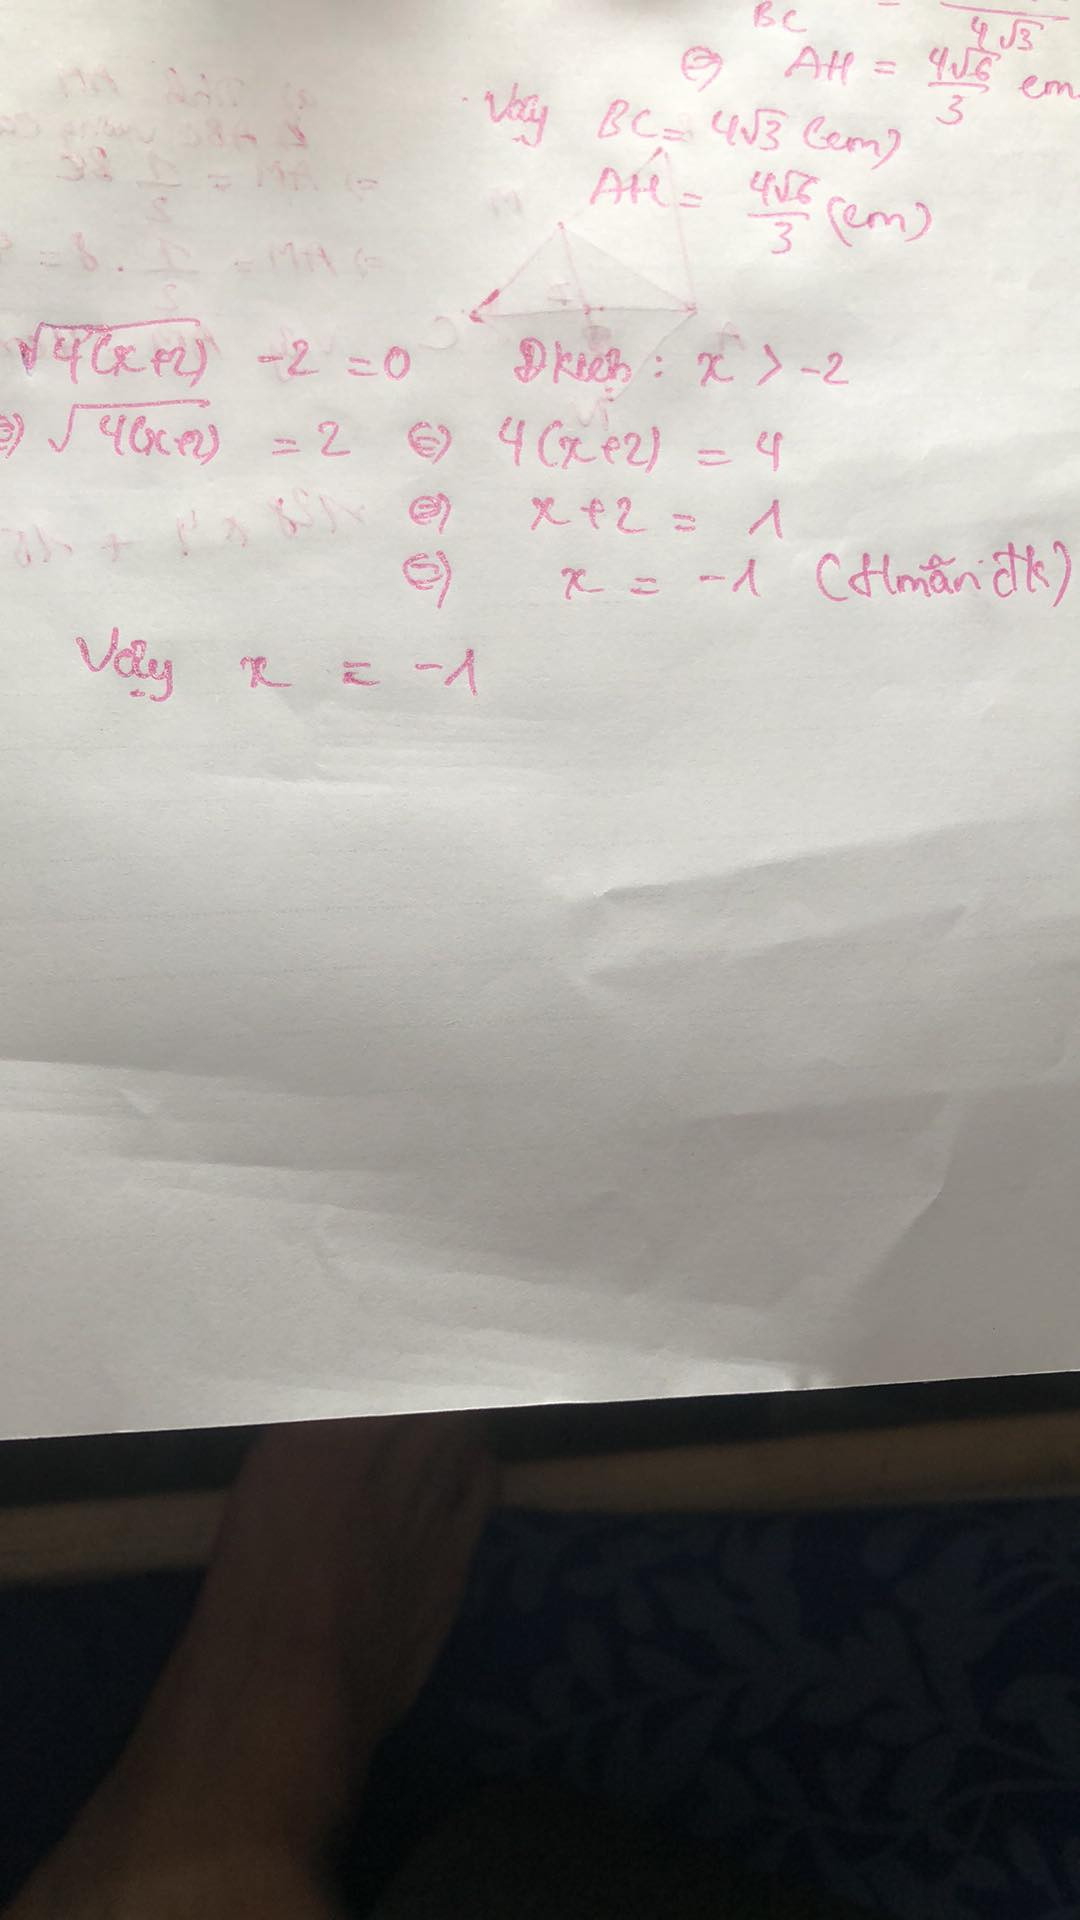 BC = 4√3
⇔ AH = 4√6/3 cm
Vậy BC = 4√3 (cm)
AH = 4√6/3 (cm)
√4(x+2) -2 = 0 Đkiện : x > -2
⇔ √4(x+2) = 2 ⇔ 4(x+2) = 4
⇔ x+2 = 1
⇔ x = -1 (tmãn đk)
Vậy x = -1